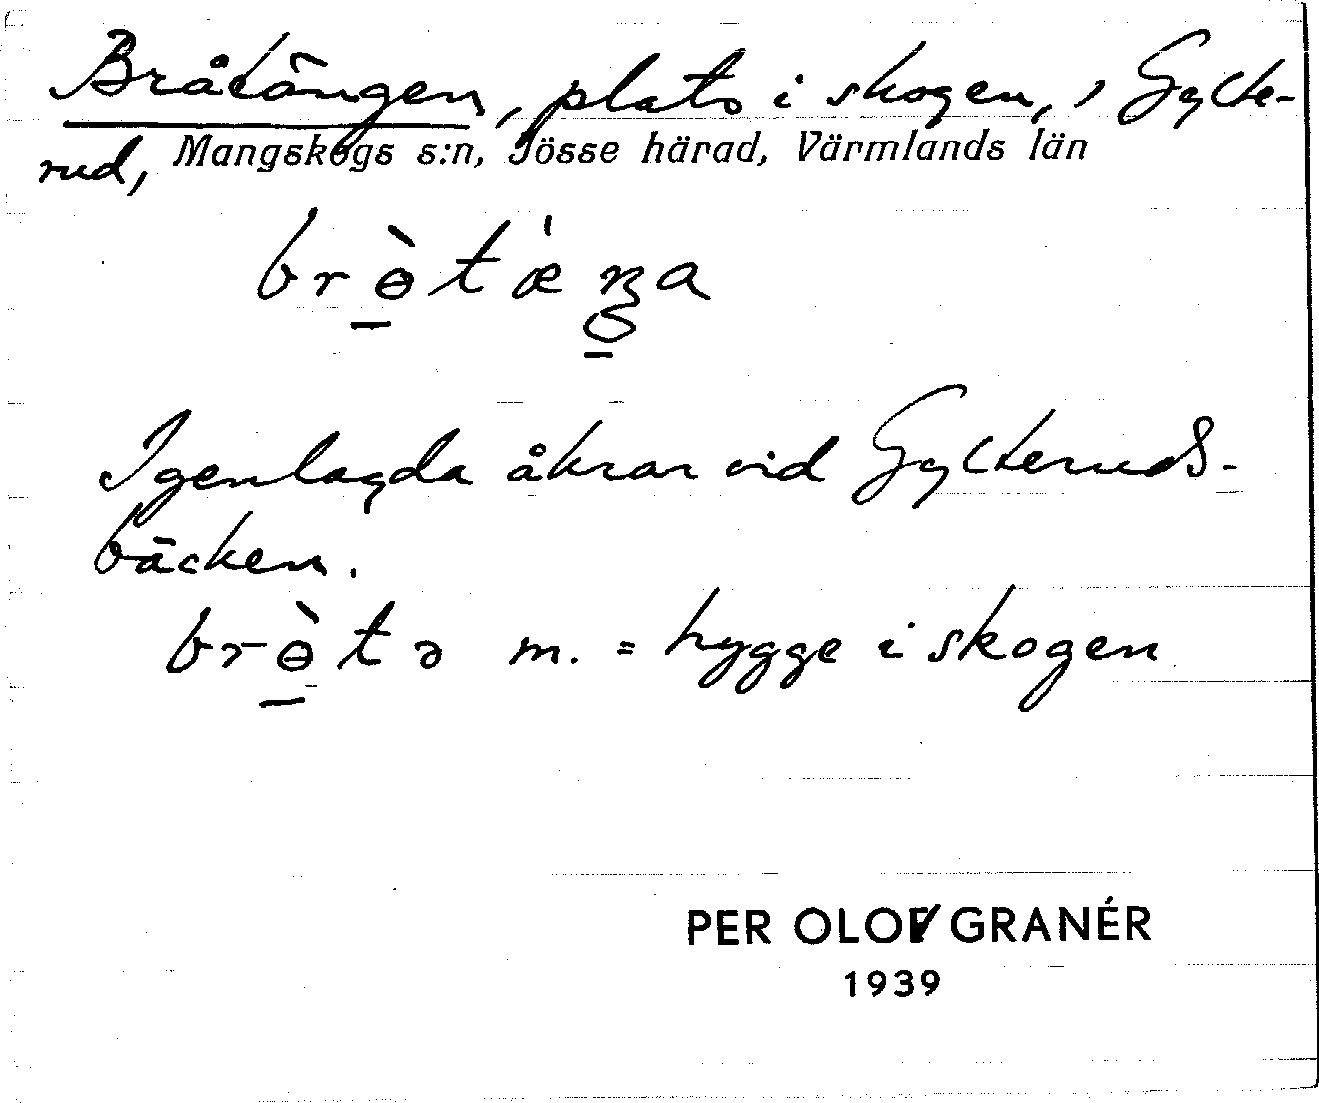 Bråtängen, plats i skogen, i Gylte-
rud, Mangskogs s:n, Jösse härad, Värmlands län
brɵ̀tæ̍ŋa
Igenlagda åkrar vid Gylteruds-
bäcken.
brɵ̀tə m. = hygge i skogen
PER OLOV GRANÉR
1939